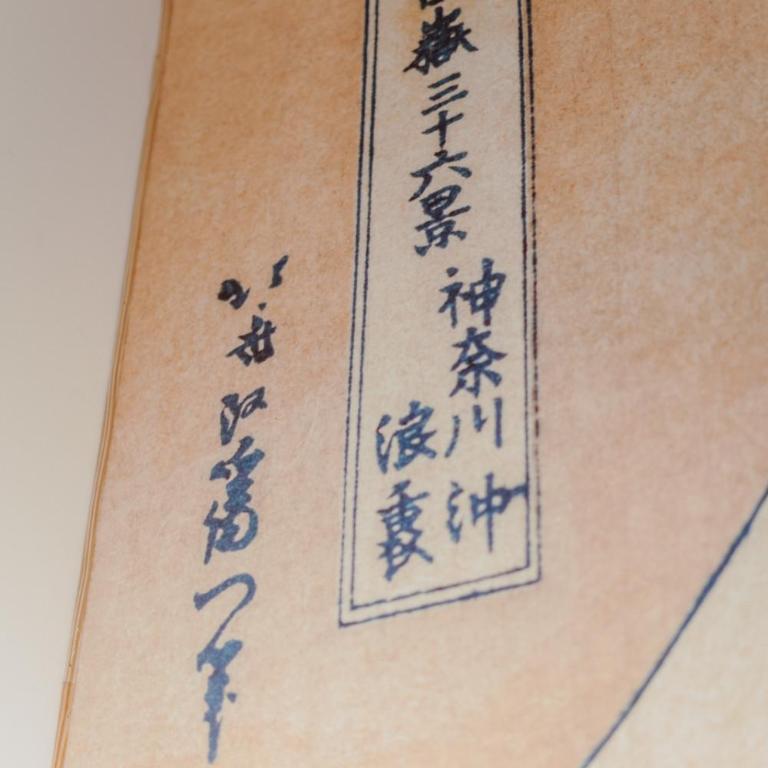 嶽三十六景
神奈川沖
浪裏
北斎改爲一筆